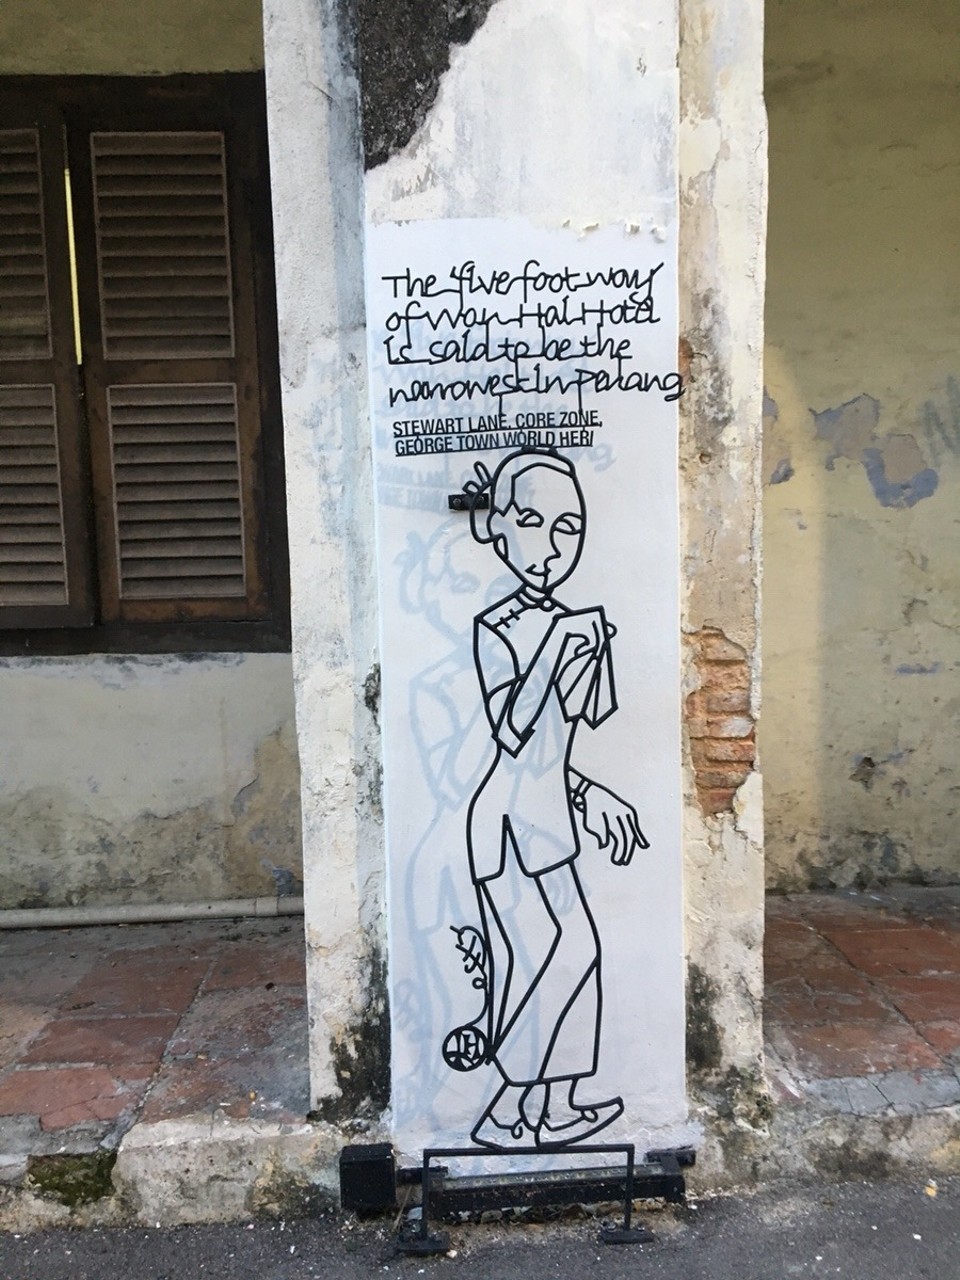 The five foot way
of Wan Hai Hotel
is said to be the
narrowest in Penang
STEWART LANE, CORE ZONE,
GEORGE TOWN WORLD HERI